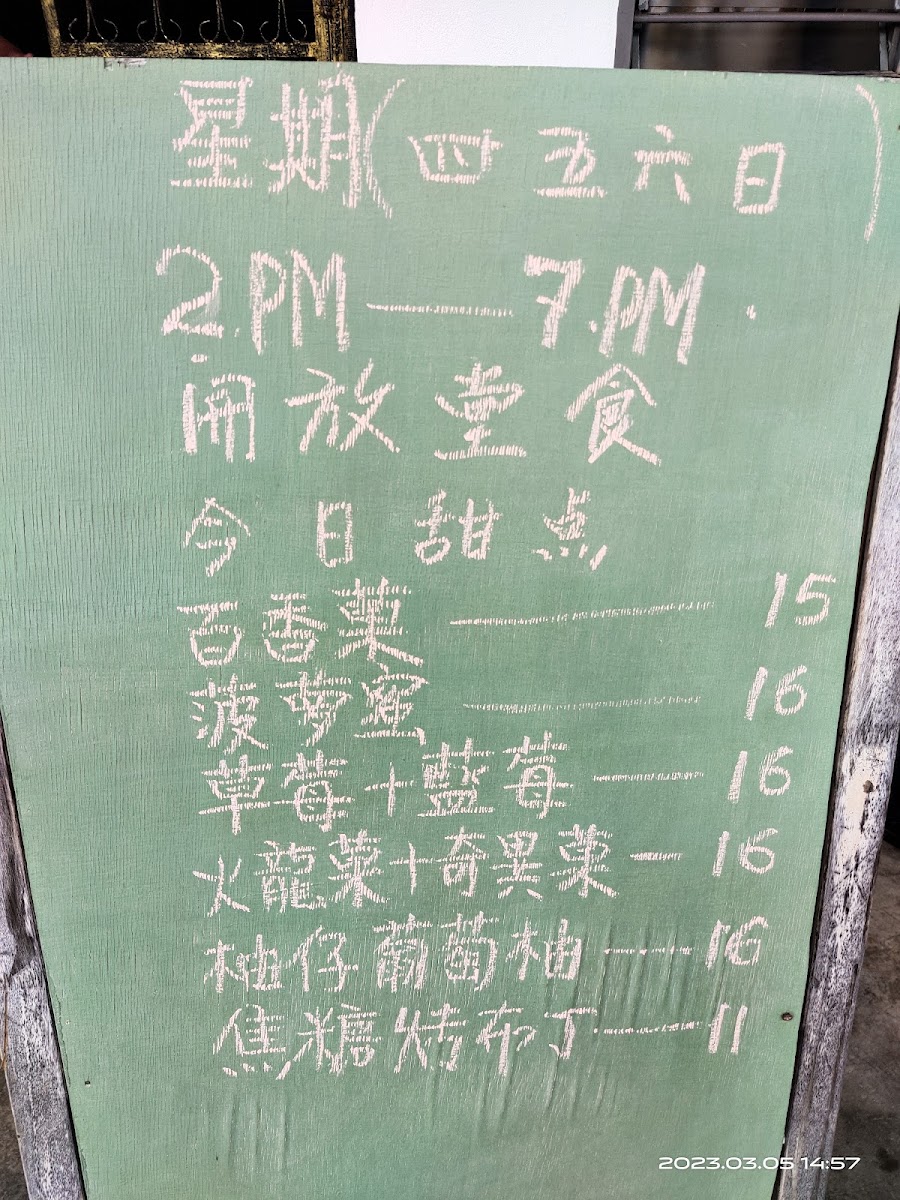 星期(四五六日)
2.PM——7.PM.
開放堂食
今日甜点
百香菓——15
菠萝蜜——16
草莓+藍莓——16
火龍菓+奇異菓—16
柚仔葡萄柚——16
焦糖烤布丁——11
2023.03.05 14:57